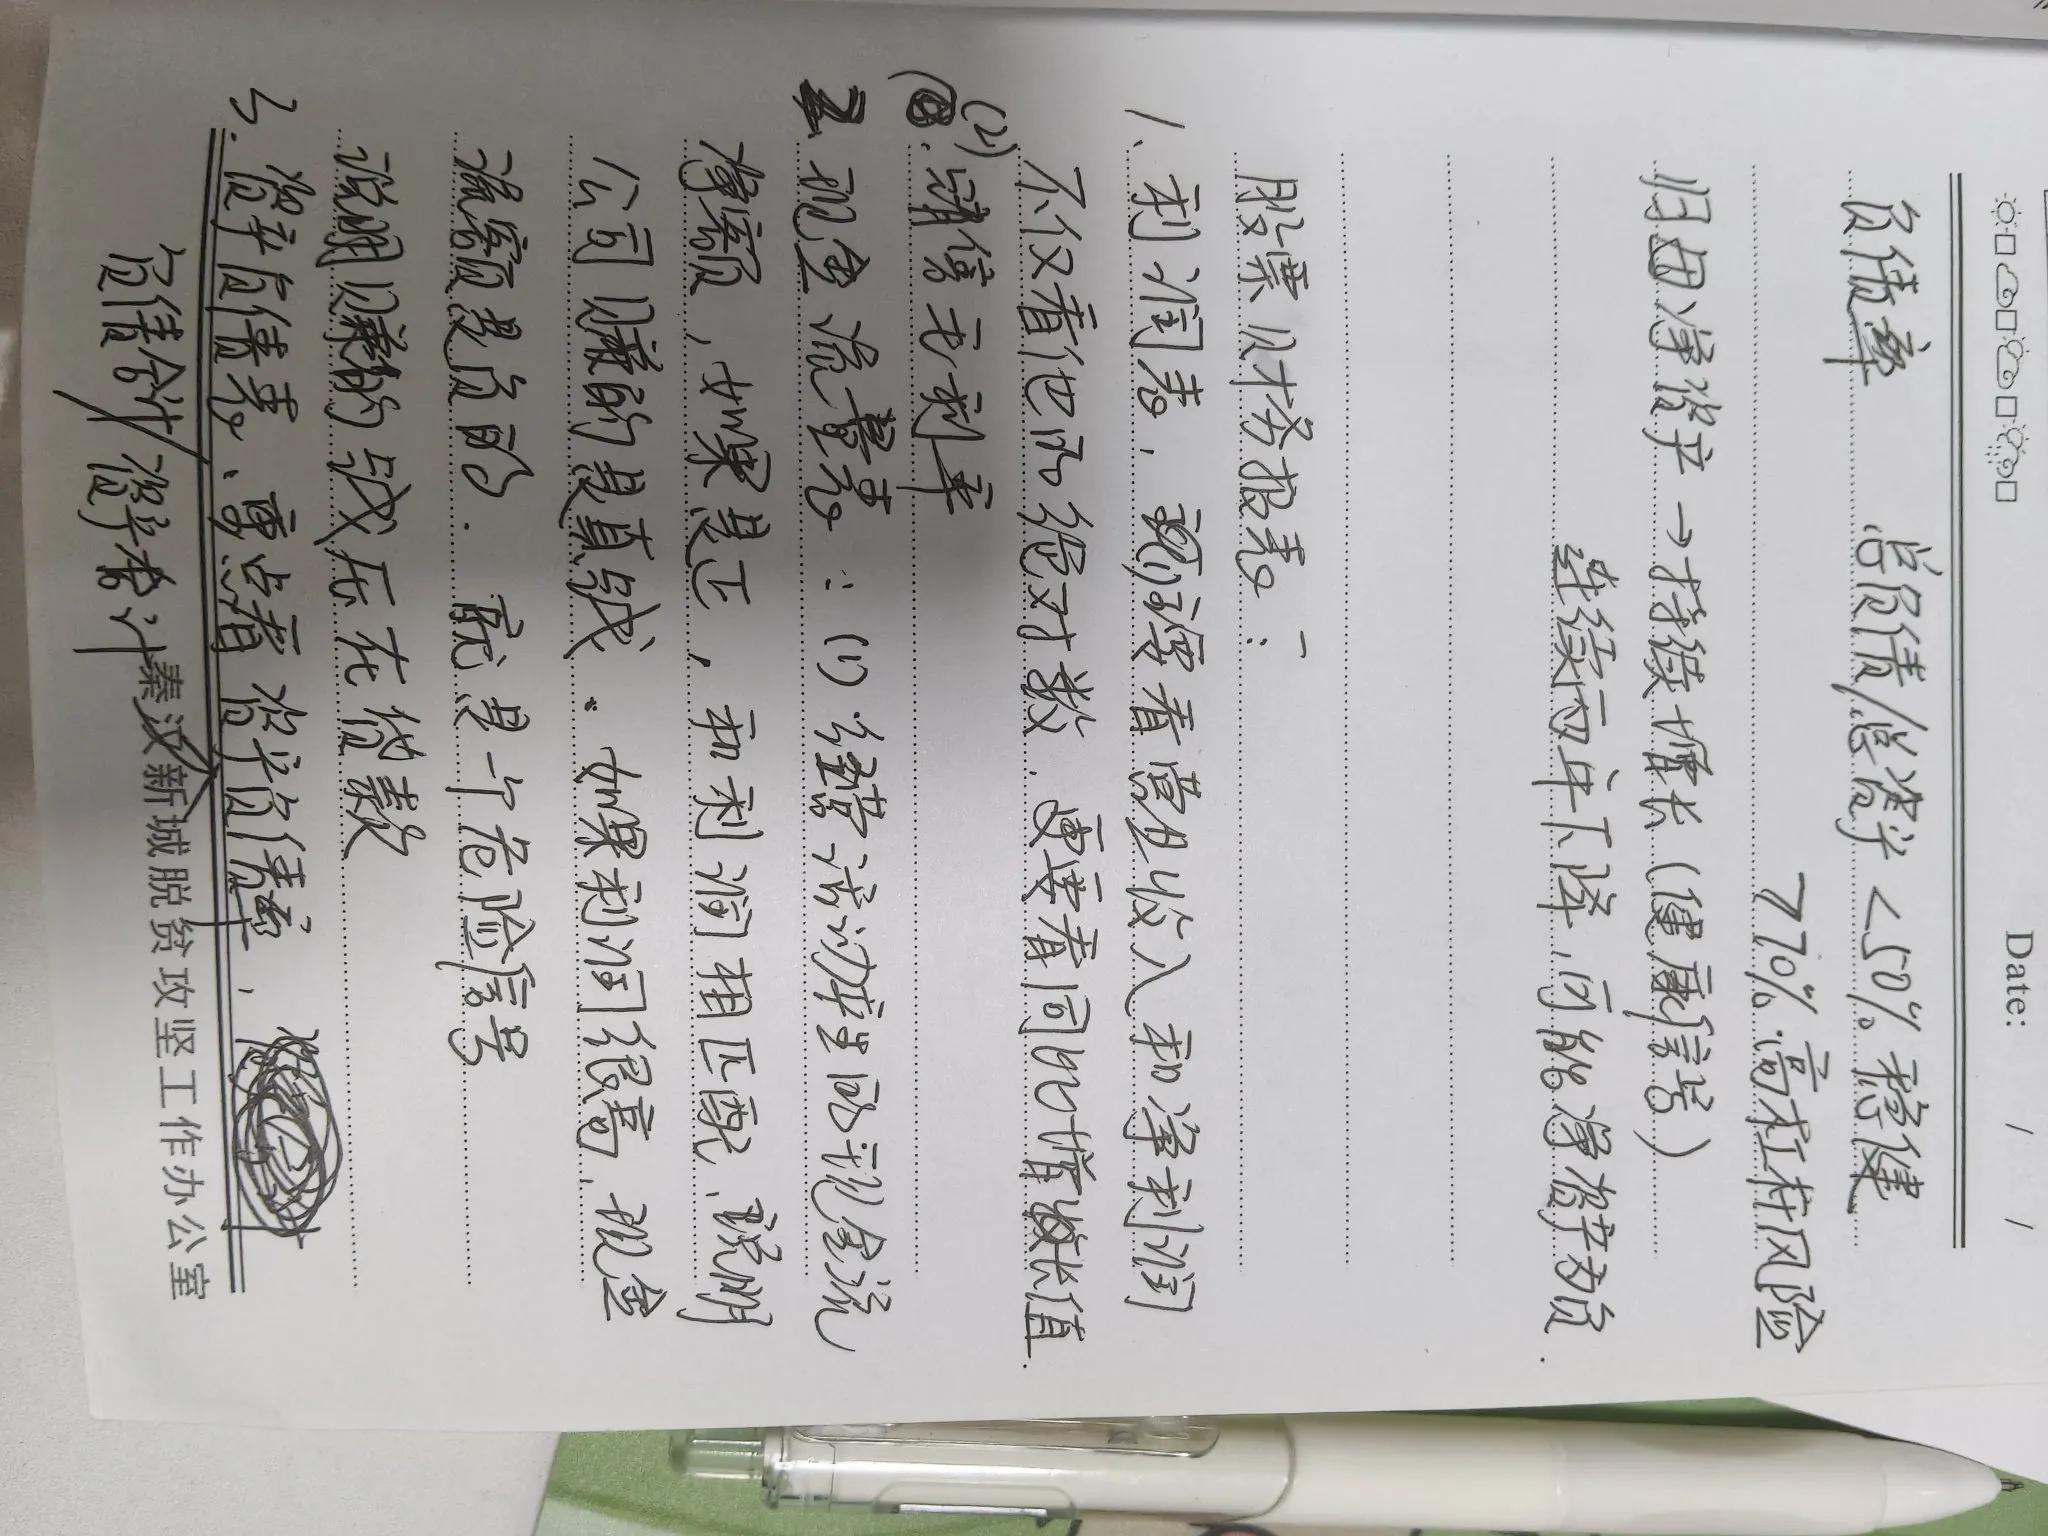 Date: / /
负债率 总负债/总资产<50% 稳健
>70% 高杠杆风险
归母净资产→持续增长(健康信号)
连续两年下降,可能净资产为负.
股票财务报表:
1、利润表,既要看营业收入和净利润
不仅看他的绝对数.更要看同比增长值.
(2).销售毛利率
2.现金流量表:(1)经营活动产生的现金流
净额,如果是正,和利润相匹配,说明
公司赚的是真钱.如果利润很高,现金
流额是负的.就是个危险信号
说明赚的钱压在货款
3.资产负债表、重点看资产负债率,
负债合计/资产合计
秦汉新城脱贫攻坚工作办公室